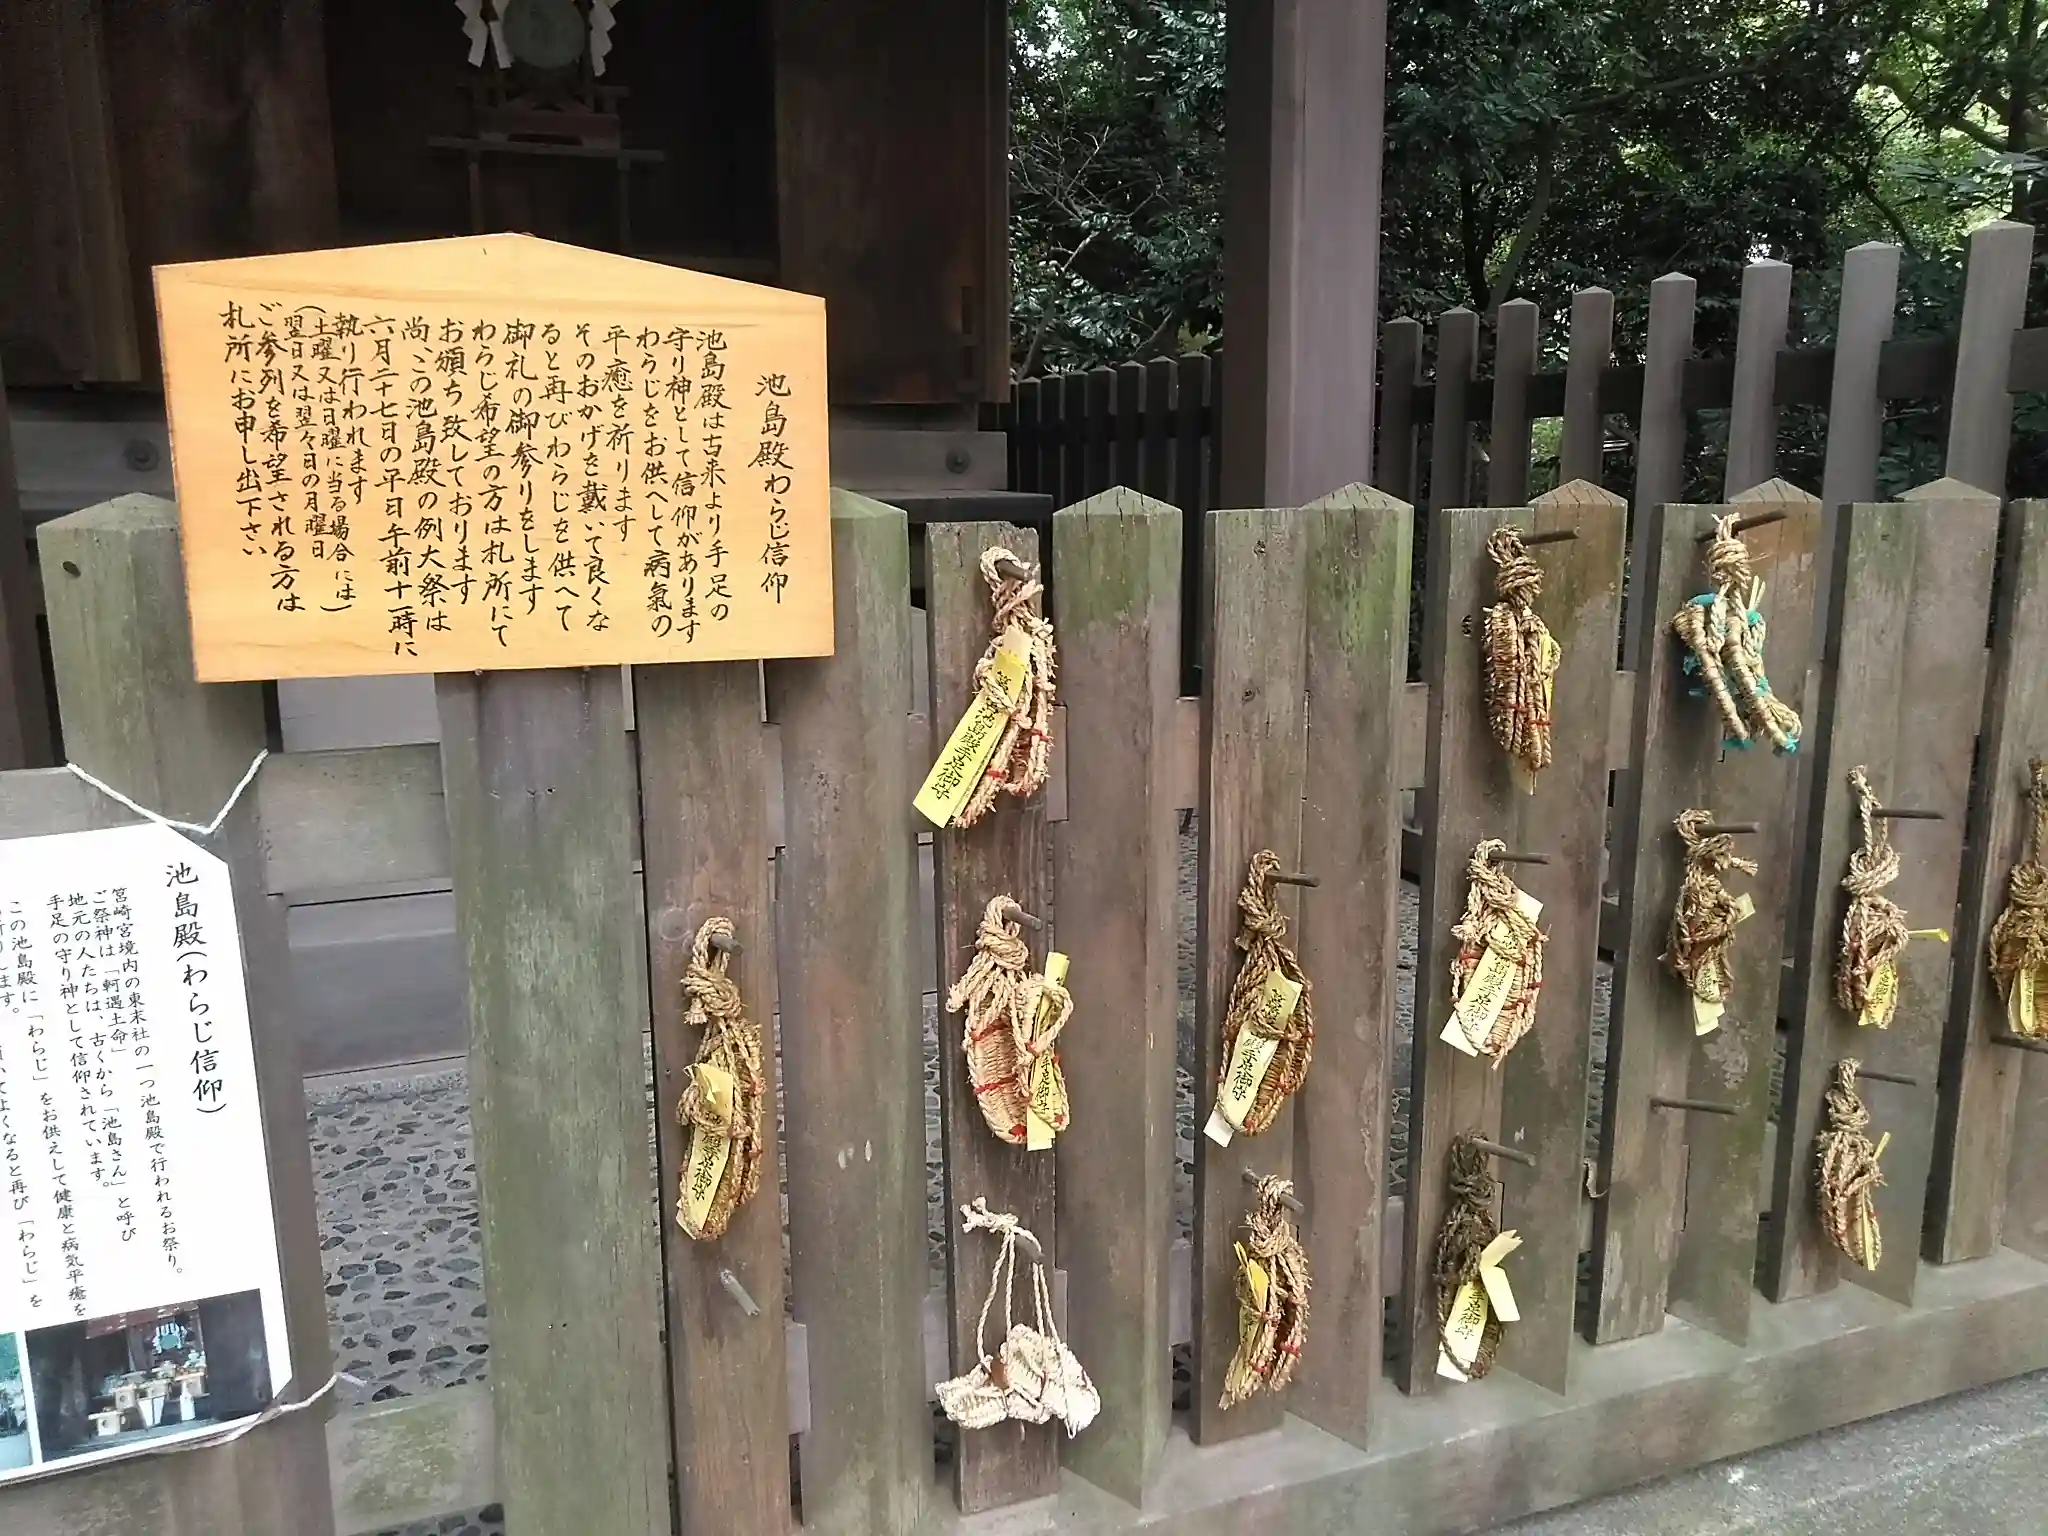 池島殿わらじ信仰
池島殿は古来より手足の
守り神として信仰があります
わらじをお供へして病氣の
平癒を祈ります
そのおかげを戴いて良くな
ると再びわらじを供へて
御礼の御参りをします
わらじ希望の方は札所にて
お頒ち致しております
尚、この池島殿の例大祭は
六月二十七日の平日午前十一時に
執り行われます
(土曜又は日曜に当る場合には)
翌日又は翌々日の月曜日
ご参列を希望される方は
札所にお申し出下さい
池島殿(わらじ信仰)
筥崎宮境内の東末社の一つ池島殿で行われるお祭り。
ご祭神は「軻遇土命」
地元の人たちは、古くから「池島さん」と呼び
手足の守り神として信仰されています。
この池島殿に「わらじ」をお供えして健康と病気平癒を
祈ります。
てよくなると再び「わらじ」を
池島殿手足御守
手足御守
筥崎
手足御守
池島殿手足御守
殿手足御守
手足御守